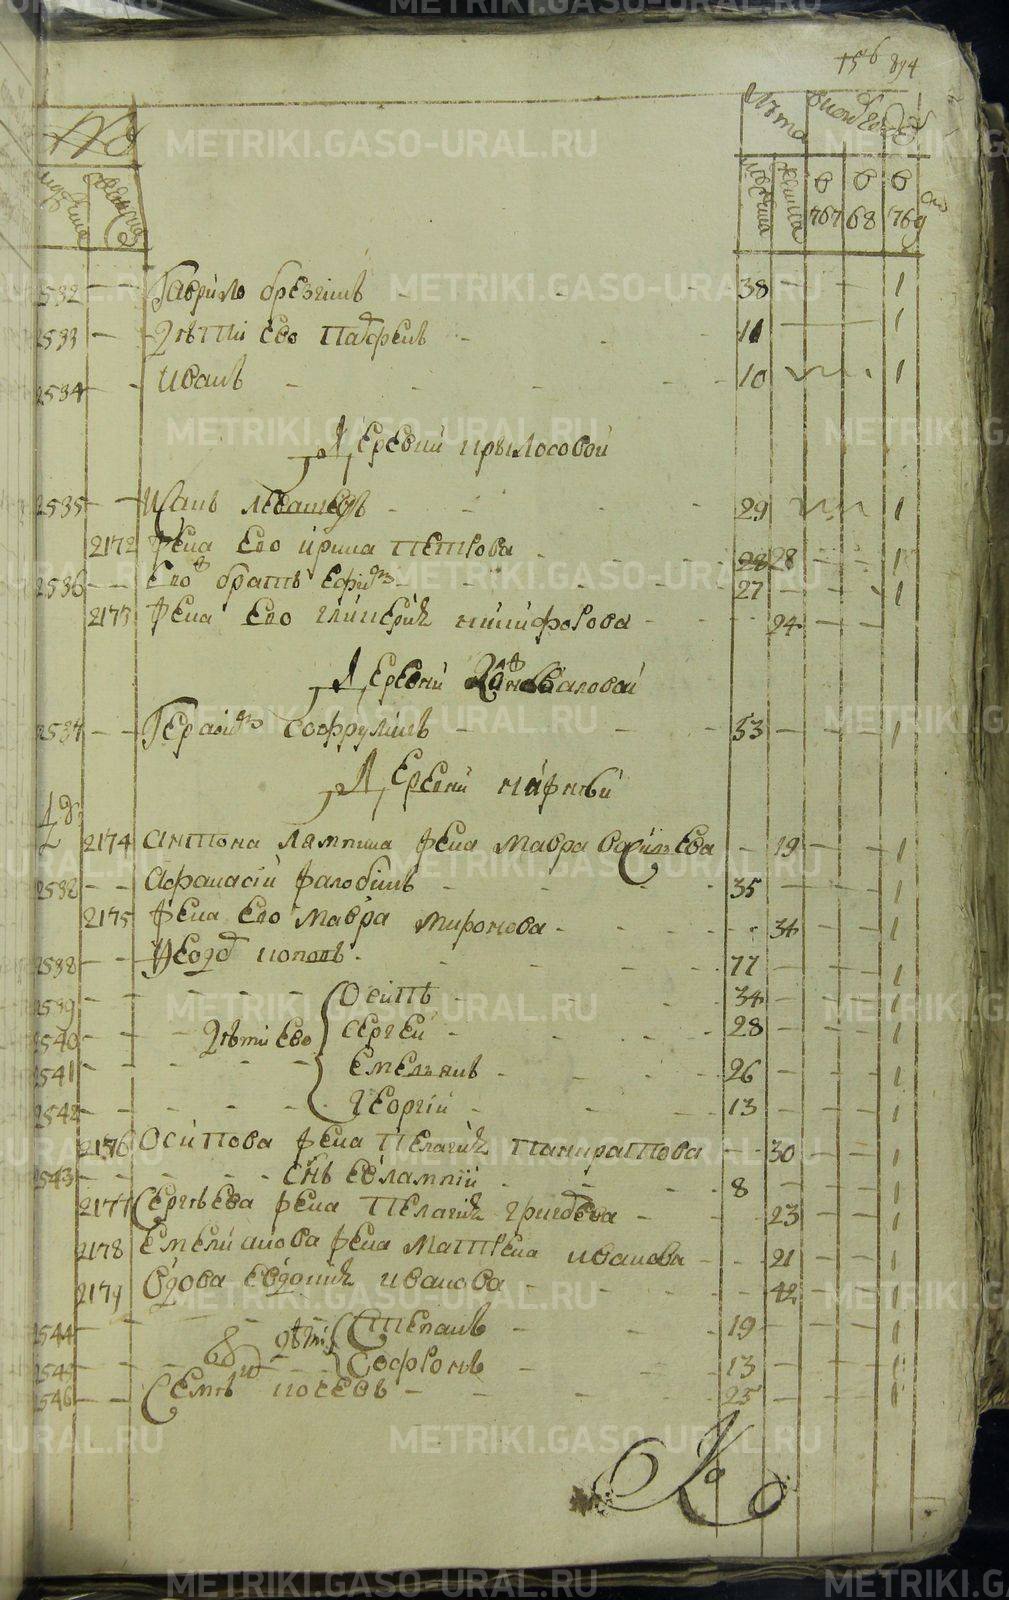 156 894
№
Лѣта
мужеска женска
мужеска женска в 767 в 68 в 769
2532 Гаврило брезгинъ 38 1
2533 дѣти ево парфенъ 11 1
2534 Иванъ 10 1
Деревни крылосовой
2535 Иванъ левашевъ 29 1
2172 жена ево ирина петрова 28 28 1
2536 ево братъ ефимъ 27 1
2173 жена ево гликерия никифорова 24
Деревни коноваловой
2537 Герасимъ софрунинъ 53 1
Деревни
2174 антона ляпкина жена мавра василева 19 1
2532 афанасий жалобинъ 35 1
2175 жена ево мавра миронова 34 1
2538 Федор поповъ 77 1
2539 Осипъ 34 1
2540 дѣти ево сергей 28 1
2541 емельянъ 26 1
2542 георгий 13 1
2176 Осипова жена пелагия панкратова 30 1
2543 снъ евлампий 8 1
2177 Сергѣева жена пелагия григорева 23 1
2178 емелиянова жена матрена иванова 21 1
2179 вдова евдокия иванова 42 1
2544 дѣти Степанъ 19 1
2545 Софронъ 13 1
2546 Семенъ носовъ 25 1
METRIKI.GASO-URAL.RU